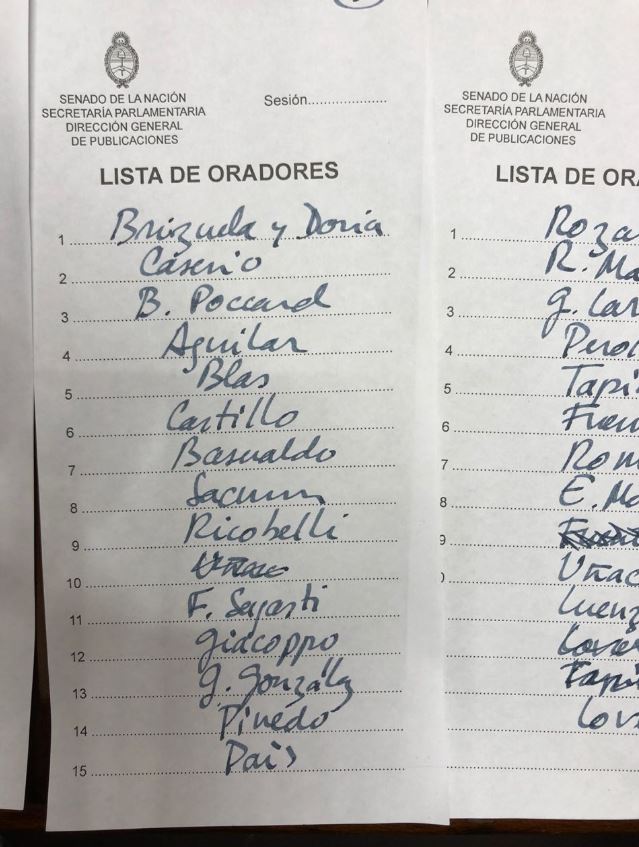 SENADO DE LA NACIÓN
SECRETARÍA PARLAMENTARIA
DIRECCIÓN GENERAL
DE PUBLICACIONES
Sesión....................
LISTA DE ORADORES
1 Brizuela y Doria
2 Caserio
3 B. Poccard
4 Aguilar
5 Blas
6 Castillo
7 Basualdo
8 Sacnun
9 Ricobelli
10 Uñac
11 F. Sagasti
12 Giacoppo
13 G. González
14 Pinedo
15 Pais
SENADO DE LA NACIÓN
SECRETARÍA PARLAMENTARIA
DIRECCIÓN GENERAL
DE PUBLICACIONES
LISTA DE ORA
1 Roza
2 R. Ma
3 G. Lar
4 Pero
5 Tapi
6 Fuen
7 Rom
8 E. Ma
9
Uñac
Luenz
Love
Tapi
Lov